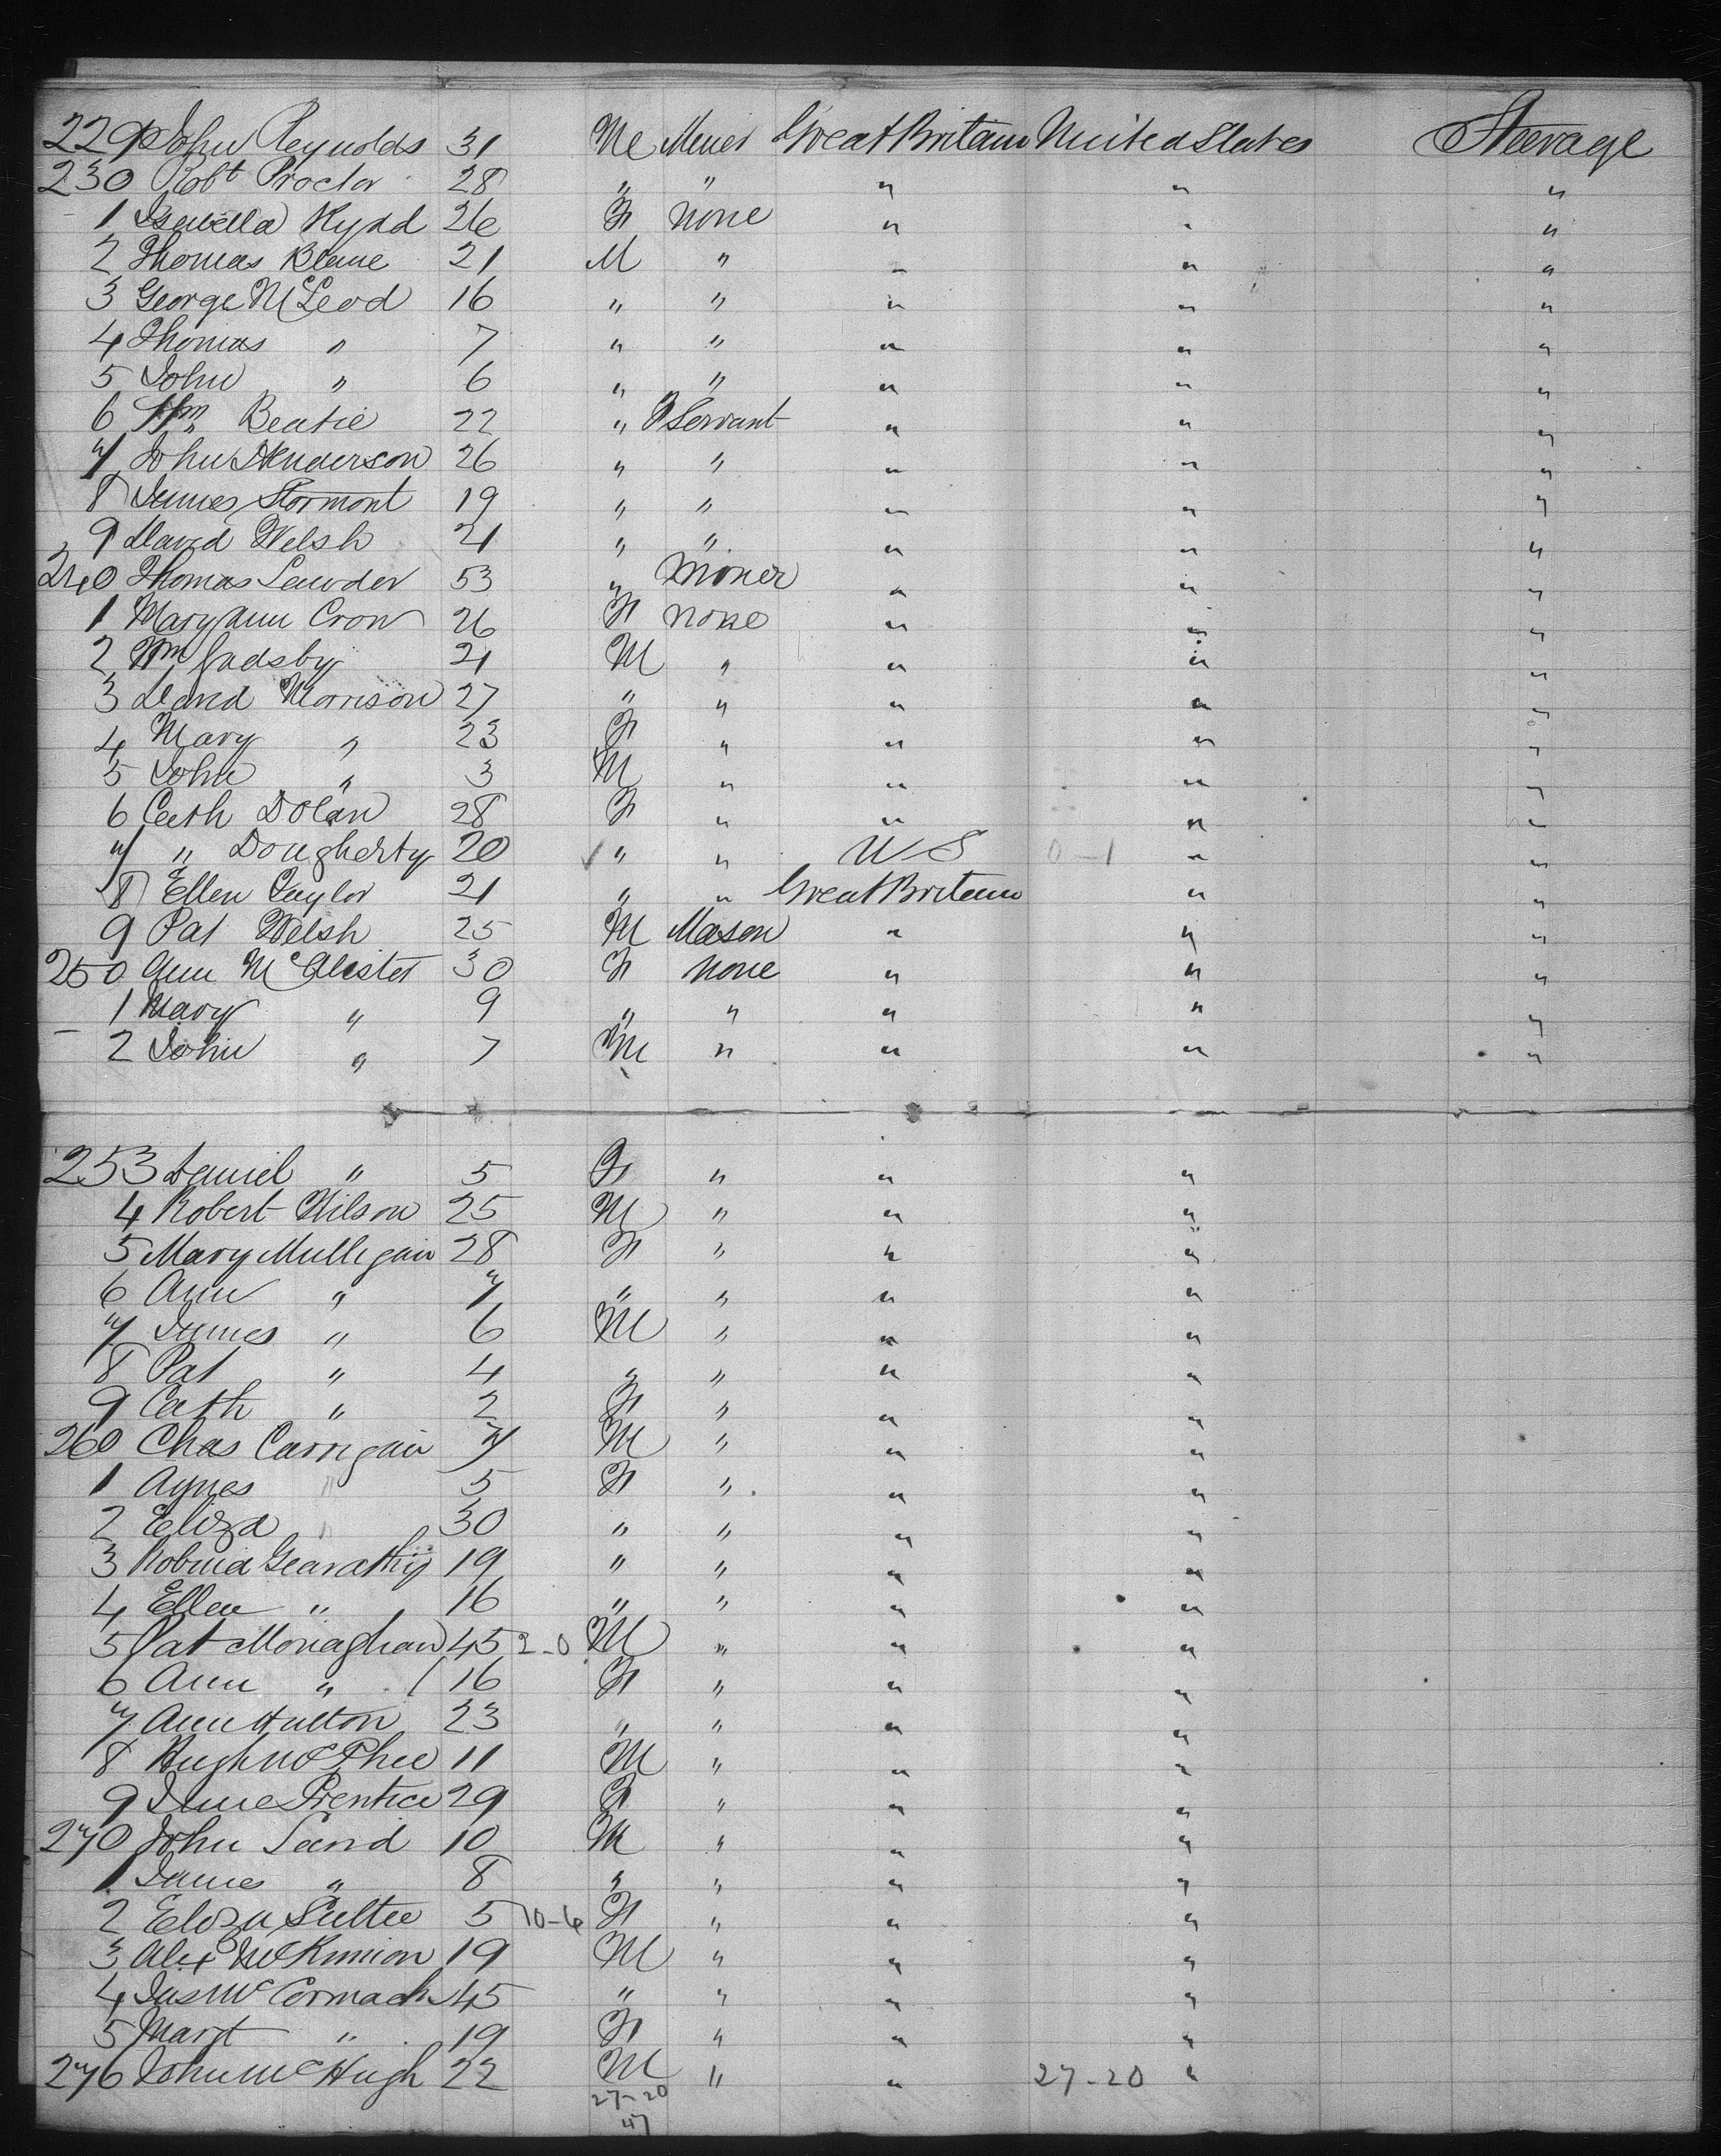 229 John Reynolds 31 M Miner Great Britain United States Steerage
230 Robt Proctor 28 " " " " "
1 Isabella Kydd 26 F none " " "
2 Thomas Blane 21 M " " " "
3 George McLeod 16 " " " " "
4 Thomas " 7 " " " " "
5 John " 6 " " " " "
6 Wm Beatie 22 " Servant " " "
7 John Henderson 26 " " " " "
8 James Stormont 19 " " " " "
9 David Welsh 21 " " " " "
240 Thomas Lawder 53 " Miner " " "
1 Mary Ann Crow 26 F none " " "
2 Wm Gadsby 21 M " " " "
3 David Morrison 27 " " " " "
4 Mary " 23 F " " " "
5 John " 3 M " " " "
6 Cath Dolan 28 F " " " "
7 " Dougherty 20 " " U S 0-1 " "
8 Ellen Taylor 21 " " Great Britain " "
9 Pat Welsh 25 M Mason " " "
250 Ann McAlister 30 F none " " "
1 Mary " 9 " " " " "
2 John " 7 M " " " "
253 Daniel " 5 F " " "
4 Robert Wilson 25 M " " "
5 Mary Mulligan 28 F " " "
6 Ann " 7 " " " "
7 James " 6 M " " "
8 Pat " 4 " " " "
9 Cath " 2 F " " "
260 Chas Carrigan 7 M " " "
1 Agnes " 5 F " " "
2 Eliza " 30 " " " "
3 Robina 19 " " " "
4 Ellen " 16 " " " "
5 Pat Monaghan 45 2-0 M " " "
6 Ann " 16 F " " "
7 Ann Hutton 23 " " " "
8 Hugh McPhee 11 M " " "
9 Jane Prentice 29 F " " "
270 John Laird 10 M " " "
1 James " 8 " " " "
2 Eliza 5 10-6 F " " "
3 Alex McKinnion 19 M " " "
4 Jas McCormack 45 " " " "
5 Margt " 19 F " " "
276 John McHugh 22 M " " 27-20 "
27-20
47